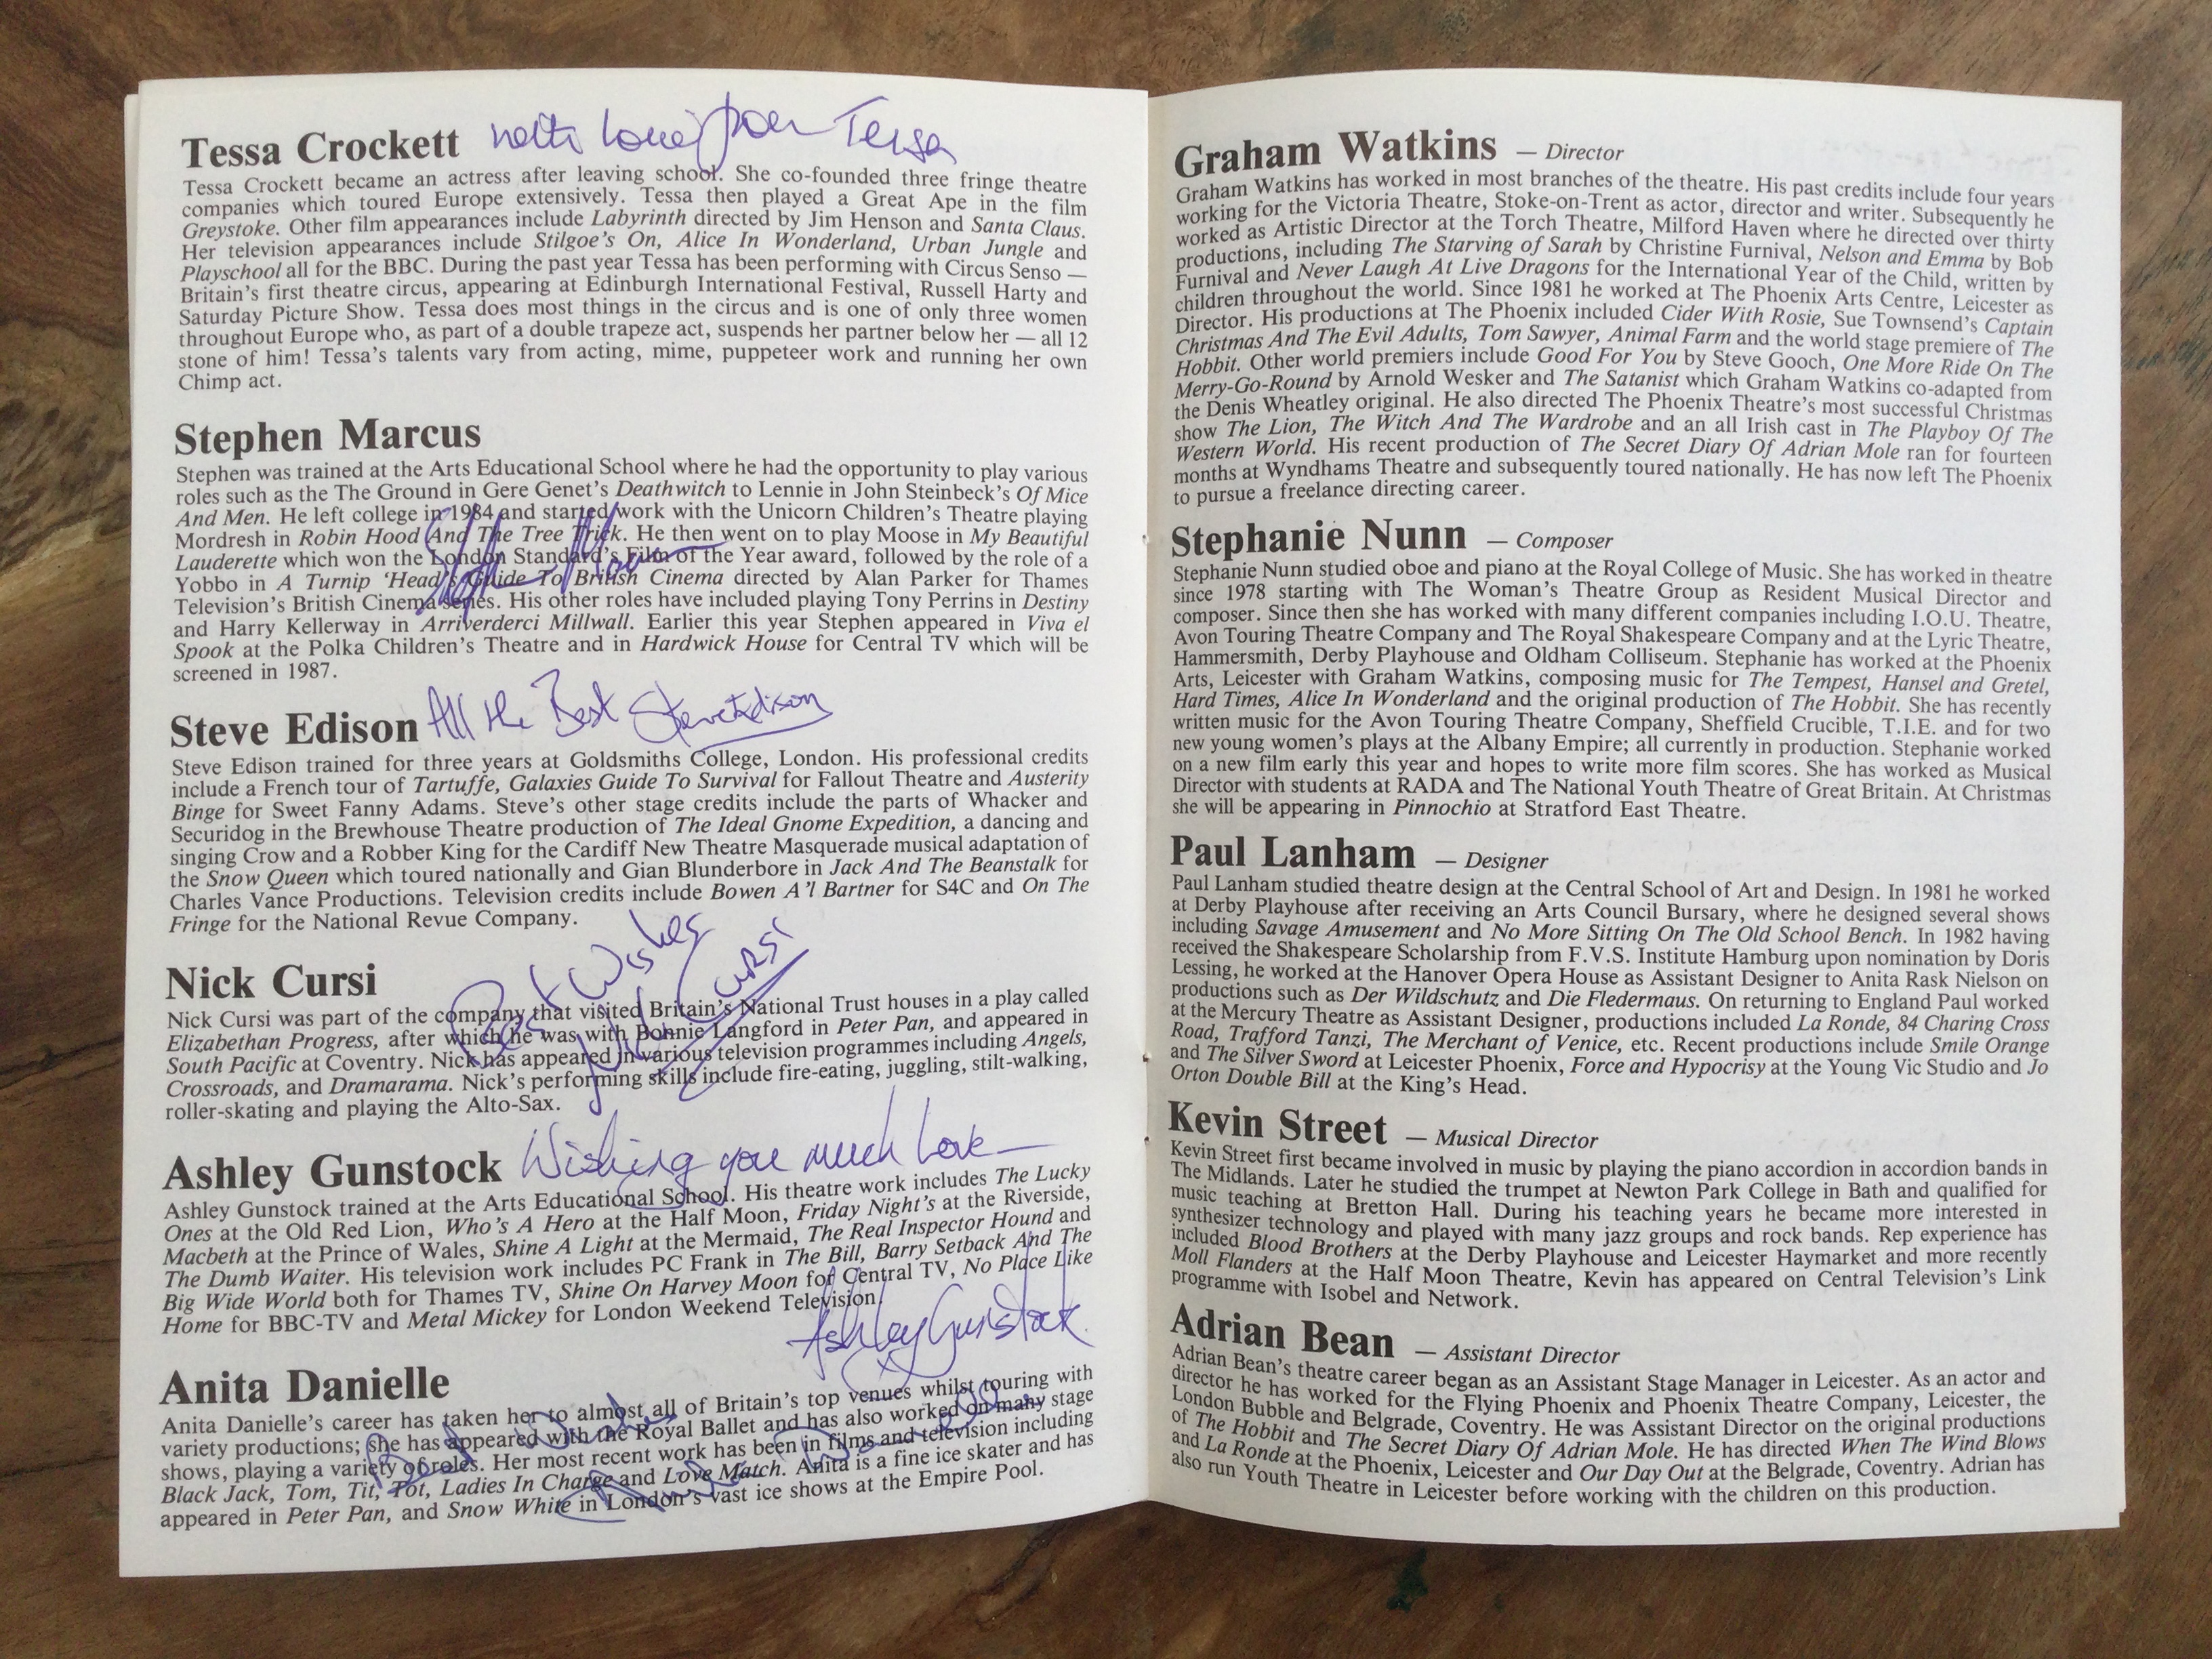 Tessa Crockett with love from Tessa
Tessa Crockett became an actress after leaving school. She co-founded three fringe theatre
companies which toured Europe extensively. Tessa then played a Great Ape in the film
Greystoke. Other film appearances include Labyrinth directed by Jim Henson and Santa Claus.
Her television appearances include Stilgoe's On, Alice In Wonderland, Urban Jungle and
Playschool all for the BBC. During the past year Tessa has been performing with Circus Senso —
Britain's first theatre circus, appearing at Edinburgh International Festival, Russell Harty and
Saturday Picture Show. Tessa does most things in the circus and is one of only three women
throughout Europe who, as part of a double trapeze act, suspends her partner below her — all 12
stone of him! Tessa's talents vary from acting, mime, puppeteer work and running her own
Chimp act.
Stephen Marcus
Stephen was trained at the Arts Educational School where he had the opportunity to play various
roles such as the The Ground in Gere Genet's Deathwitch to Lennie in John Steinbeck's Of Mice
And Men. He left college in 1984 and started work with the Unicorn Children's Theatre playing
Mordresh in Robin Hood And The Tree Trick. He then went on to play Moose in My Beautiful
Lauderette which won the London Standard's Film of the Year award, followed by the role of a
Yobbo in A Turnip 'Head's Guide To British Cinema directed by Alan Parker for Thames
Television's British Cinema series. His other roles have included playing Tony Perrins in Destiny
and Harry Kellerway in Arriverderci Millwall. Earlier this year Stephen appeared in Viva el
Spook at the Polka Children's Theatre and in Hardwick House for Central TV which will be
screened in 1987.
Steve Edison All the Best Steve Edison
Steve Edison trained for three years at Goldsmiths College, London. His professional credits
include a French tour of Tartuffe, Galaxies Guide To Survival for Fallout Theatre and Austerity
Binge for Sweet Fanny Adams. Steve's other stage credits include the parts of Whacker and
Securidog in the Brewhouse Theatre production of The Ideal Gnome Expedition, a dancing and
singing Crow and a Robber King for the Cardiff New Theatre Masquerade musical adaptation of
the Snow Queen which toured nationally and Gian Blunderbore in Jack And The Beanstalk for
Charles Vance Productions. Television credits include Bowen A'l Bartner for S4C and On The
Fringe for the National Revue Company.
Best Wishes
Nick Cursi
Nick Cursi
Nick Cursi was part of the company that visited Britain's National Trust houses in a play called
Elizabethan Progress, after which he was with Bonnie Langford in Peter Pan, and appeared in
South Pacific at Coventry. Nick has appeared in various television programmes including Angels,
Crossroads, and Dramarama. Nick's performing skills include fire-eating, juggling, stilt-walking,
roller-skating and playing the Alto-Sax.
Ashley Gunstock Wishing you much love—
Ashley Gunstock trained at the Arts Educational School. His theatre work includes The Lucky
Ones at the Old Red Lion, Who's A Hero at the Half Moon, Friday Night's at the Riverside,
Macbeth at the Prince of Wales, Shine A Light at the Mermaid, The Real Inspector Hound and
The Dumb Waiter. His television work includes PC Frank in The Bill, Barry Setback And The
Big Wide World both for Thames TV, Shine On Harvey Moon for Central TV, No Place Like
Home for BBC-TV and Metal Mickey for London Weekend Television.
Ashley Gunstock
Anita Danielle
Anita Danielle's career has taken her to almost all of Britain's top venues whilst touring with
variety productions; she has appeared with the Royal Ballet and has also worked on many stage
shows, playing a variety of roles. Her most recent work has been in films and television including
Black Jack, Tom, Tit, Tot, Ladies In Charge and Love Match. Anita is a fine ice skater and has
appeared in Peter Pan, and Snow White in London's vast ice shows at the Empire Pool.
Best Wishes
Anita Danielle
Graham Watkins — Director
Graham Watkins has worked in most branches of the theatre. His past credits include four years
working for the Victoria Theatre, Stoke-on-Trent as actor, director and writer. Subsequently he
worked as Artistic Director at the Torch Theatre, Milford Haven where he directed over thirty
productions, including The Starving of Sarah by Christine Furnival, Nelson and Emma by Bob
Furnival and Never Laugh At Live Dragons for the International Year of the Child, written by
children throughout the world. Since 1981 he worked at The Phoenix Arts Centre, Leicester as
Director. His productions at The Phoenix included Cider With Rosie, Sue Townsend's Captain
Christmas And The Evil Adults, Tom Sawyer, Animal Farm and the world stage premiere of The
Hobbit. Other world premiers include Good For You by Steve Gooch, One More Ride On The
Merry-Go-Round by Arnold Wesker and The Satanist which Graham Watkins co-adapted from
the Denis Wheatley original. He also directed The Phoenix Theatre's most successful Christmas
show The Lion, The Witch And The Wardrobe and an all Irish cast in The Playboy Of The
Western World. His recent production of The Secret Diary Of Adrian Mole ran for fourteen
months at Wyndhams Theatre and subsequently toured nationally. He has now left The Phoenix
to pursue a freelance directing career.
Stephanie Nunn — Composer
Stephanie Nunn studied oboe and piano at the Royal College of Music. She has worked in theatre
since 1978 starting with The Woman's Theatre Group as Resident Musical Director and
composer. Since then she has worked with many different companies including I.O.U. Theatre,
Avon Touring Theatre Company and The Royal Shakespeare Company and at the Lyric Theatre,
Hammersmith, Derby Playhouse and Oldham Colliseum. Stephanie has worked at the Phoenix
Arts, Leicester with Graham Watkins, composing music for The Tempest, Hansel and Gretel,
Hard Times, Alice In Wonderland and the original production of The Hobbit. She has recently
written music for the Avon Touring Theatre Company, Sheffield Crucible, T.I.E. and for two
new young women's plays at the Albany Empire; all currently in production. Stephanie worked
on a new film early this year and hopes to write more film scores. She has worked as Musical
Director with students at RADA and The National Youth Theatre of Great Britain. At Christmas
she will be appearing in Pinnochio at Stratford East Theatre.
Paul Lanham — Designer
Paul Lanham studied theatre design at the Central School of Art and Design. In 1981 he worked
at Derby Playhouse after receiving an Arts Council Bursary, where he designed several shows
including Savage Amusement and No More Sitting On The Old School Bench. In 1982 having
received the Shakespeare Scholarship from F.V.S. Institute Hamburg upon nomination by Doris
Lessing, he worked at the Hanover Opera House as Assistant Designer to Anita Rask Nielson on
productions such as Der Wildschutz and Die Fledermaus. On returning to England Paul worked
at the Mercury Theatre as Assistant Designer, productions included La Ronde, 84 Charing Cross
Road, Trafford Tanzi, The Merchant of Venice, etc. Recent productions include Smile Orange
and The Silver Sword at Leicester Phoenix, Force and Hypocrisy at the Young Vic Studio and Jo
Orton Double Bill at the King's Head.
Kevin Street — Musical Director
Kevin Street first became involved in music by playing the piano accordion in accordion bands in
The Midlands. Later he studied the trumpet at Newton Park College in Bath and qualified for
music teaching at Bretton Hall. During his teaching years he became more interested in
synthesizer technology and played with many jazz groups and rock bands. Rep experience has
included Blood Brothers at the Derby Playhouse and Leicester Haymarket and more recently
Moll Flanders at the Half Moon Theatre, Kevin has appeared on Central Television's Link
programme with Isobel and Network.
Adrian Bean — Assistant Director
Adrian Bean's theatre career began as an Assistant Stage Manager in Leicester. As an actor and
director he has worked for the Flying Phoenix and Phoenix Theatre Company, Leicester, the
London Bubble and Belgrade, Coventry. He was Assistant Director on the original productions
of The Hobbit and The Secret Diary Of Adrian Mole. He has directed When The Wind Blows
and La Ronde at the Phoenix, Leicester and Our Day Out at the Belgrade, Coventry. Adrian has
also run Youth Theatre in Leicester before working with the children on this production.